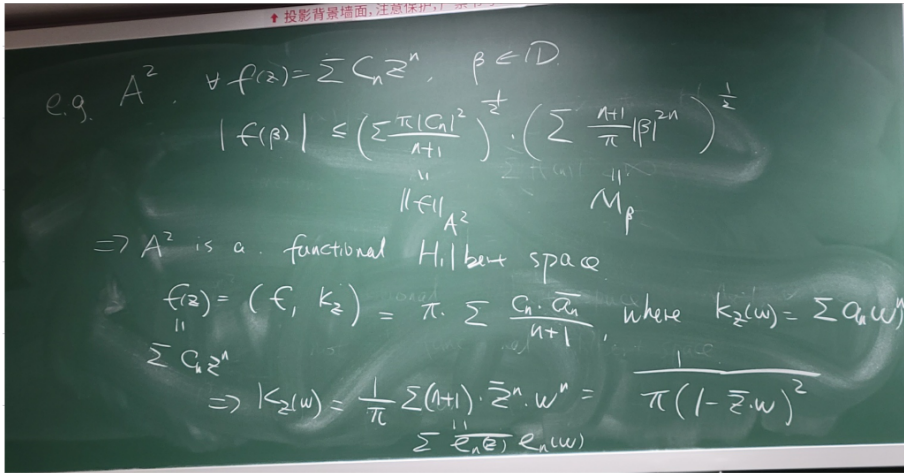 ⬆ 投影背景墙面,注意保护,
e.g. A², ∀ f(z) = Σ Cₙ zⁿ, β ∈ ID.
|f(β)| ≤ (Σ π|Cₙ|²/(n+1))^(1/2) · (Σ (n+1)/π |β|²ⁿ)^(1/2)
|| ||
‖f‖_A² M_β
=> A² is a functional Hilbert space.
f(z) = (f, k_z) = π · Σ (Cₙ · \overline{aₙ})/(n+1), where k_z(w) = Σ aₙ wⁿ
||
Σ Cₙ zⁿ
=> k_z(w) = 1/π Σ(n+1) · \overline{z}ⁿ · wⁿ = 1/(π(1 - \overline{z} · w)²)
||
Σ \overline{eₙ(z)} eₙ(w)